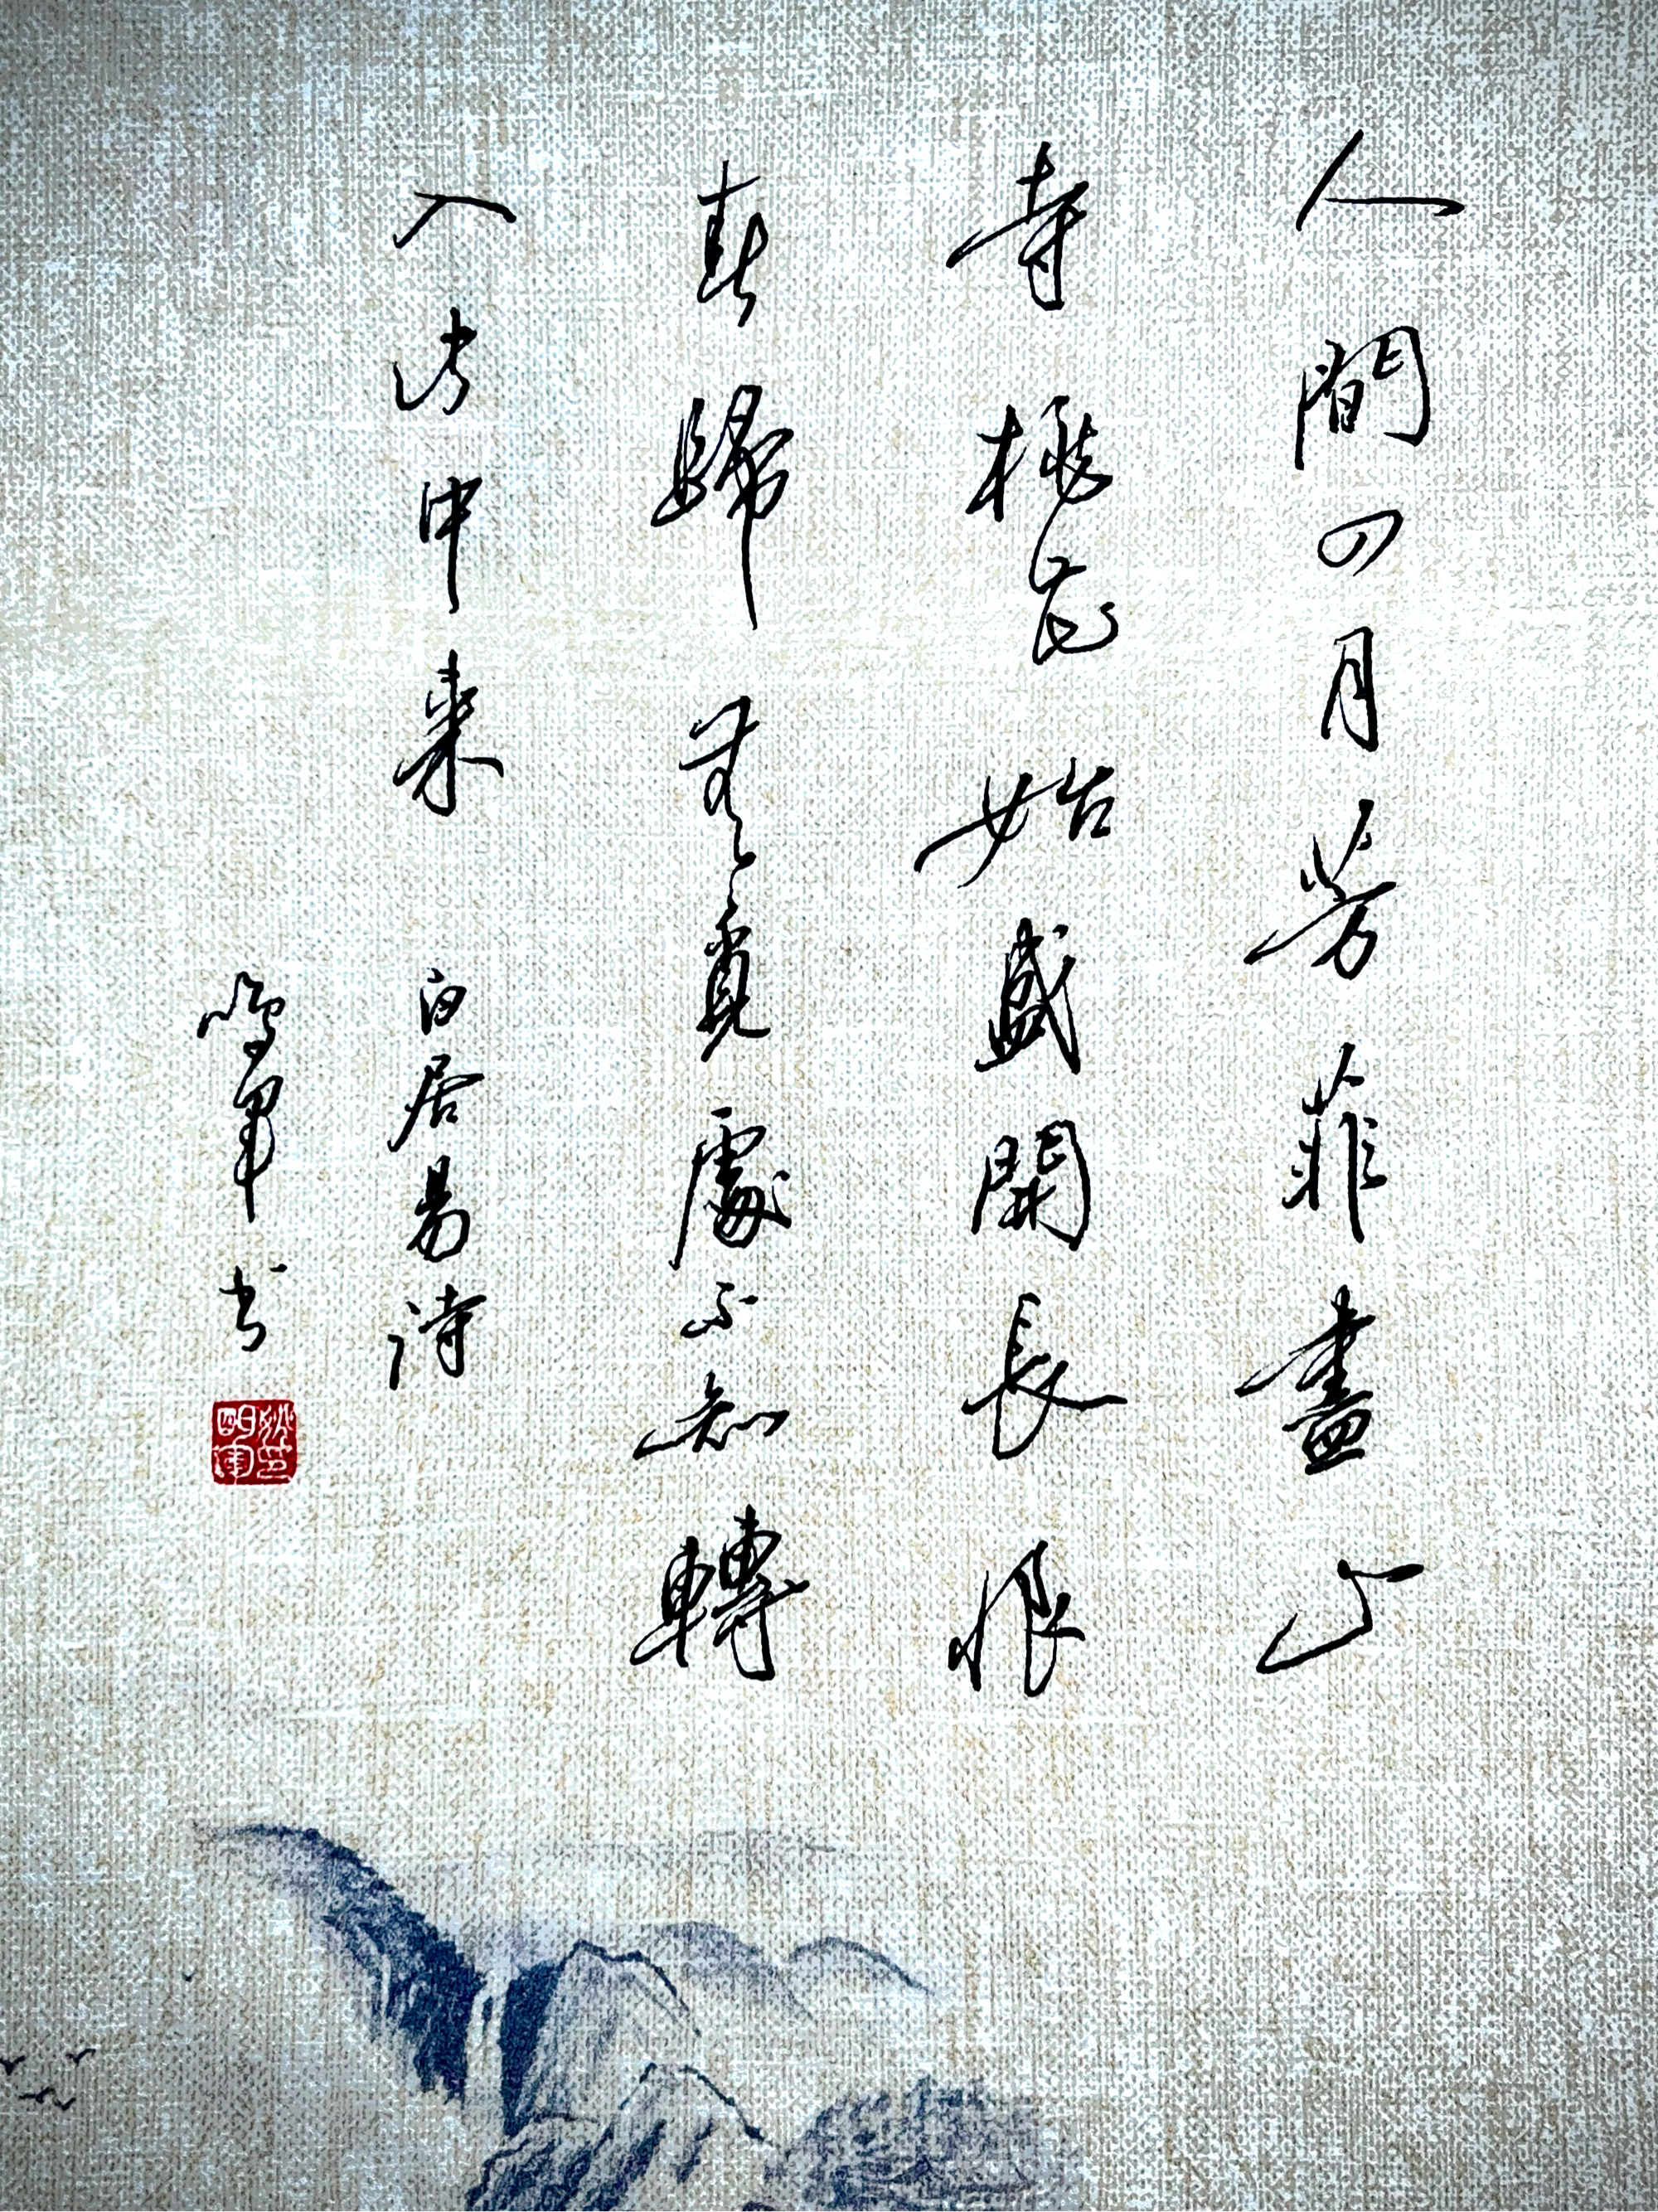 人間四月芳菲盡山
寺桃花始盛開長恨
春歸無覓處不知轉
入此中来
白居易詩
鳴軍书